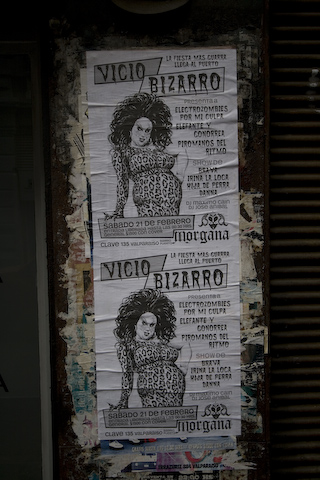 LA FIESTA MAS GUARRA
LLEGA AL PUERTO
VICIO
BIZARRO
PRESENTA A
ELECTROZOMBIES
POR MI CULPA
ELEFANTE Y
GONORREA
PIROMANOS DEL
RITMO
SHOW DE
BRAVA
IRINA LA LOCA
HIJA DE PERRA
DANNA
SABADO 21 DE FEBRERO
CLAVE 135 VALPARAISO
morgana
LA FIESTA MAS GUARRA
LLEGA AL PUERTO
VICIO
BIZARRO
PRESENTA A
ELECTROZOMBIES
POR MI CULPA
ELEFANTE Y
GONORREA
PIROMANOS DEL
RITMO
SHOW DE
BRAVA
IRINA LA LOCA
HIJA DE PERRA
DANNA
SABADO 21 DE FEBRERO
CLAVE 135 VALPARAISO
morgana